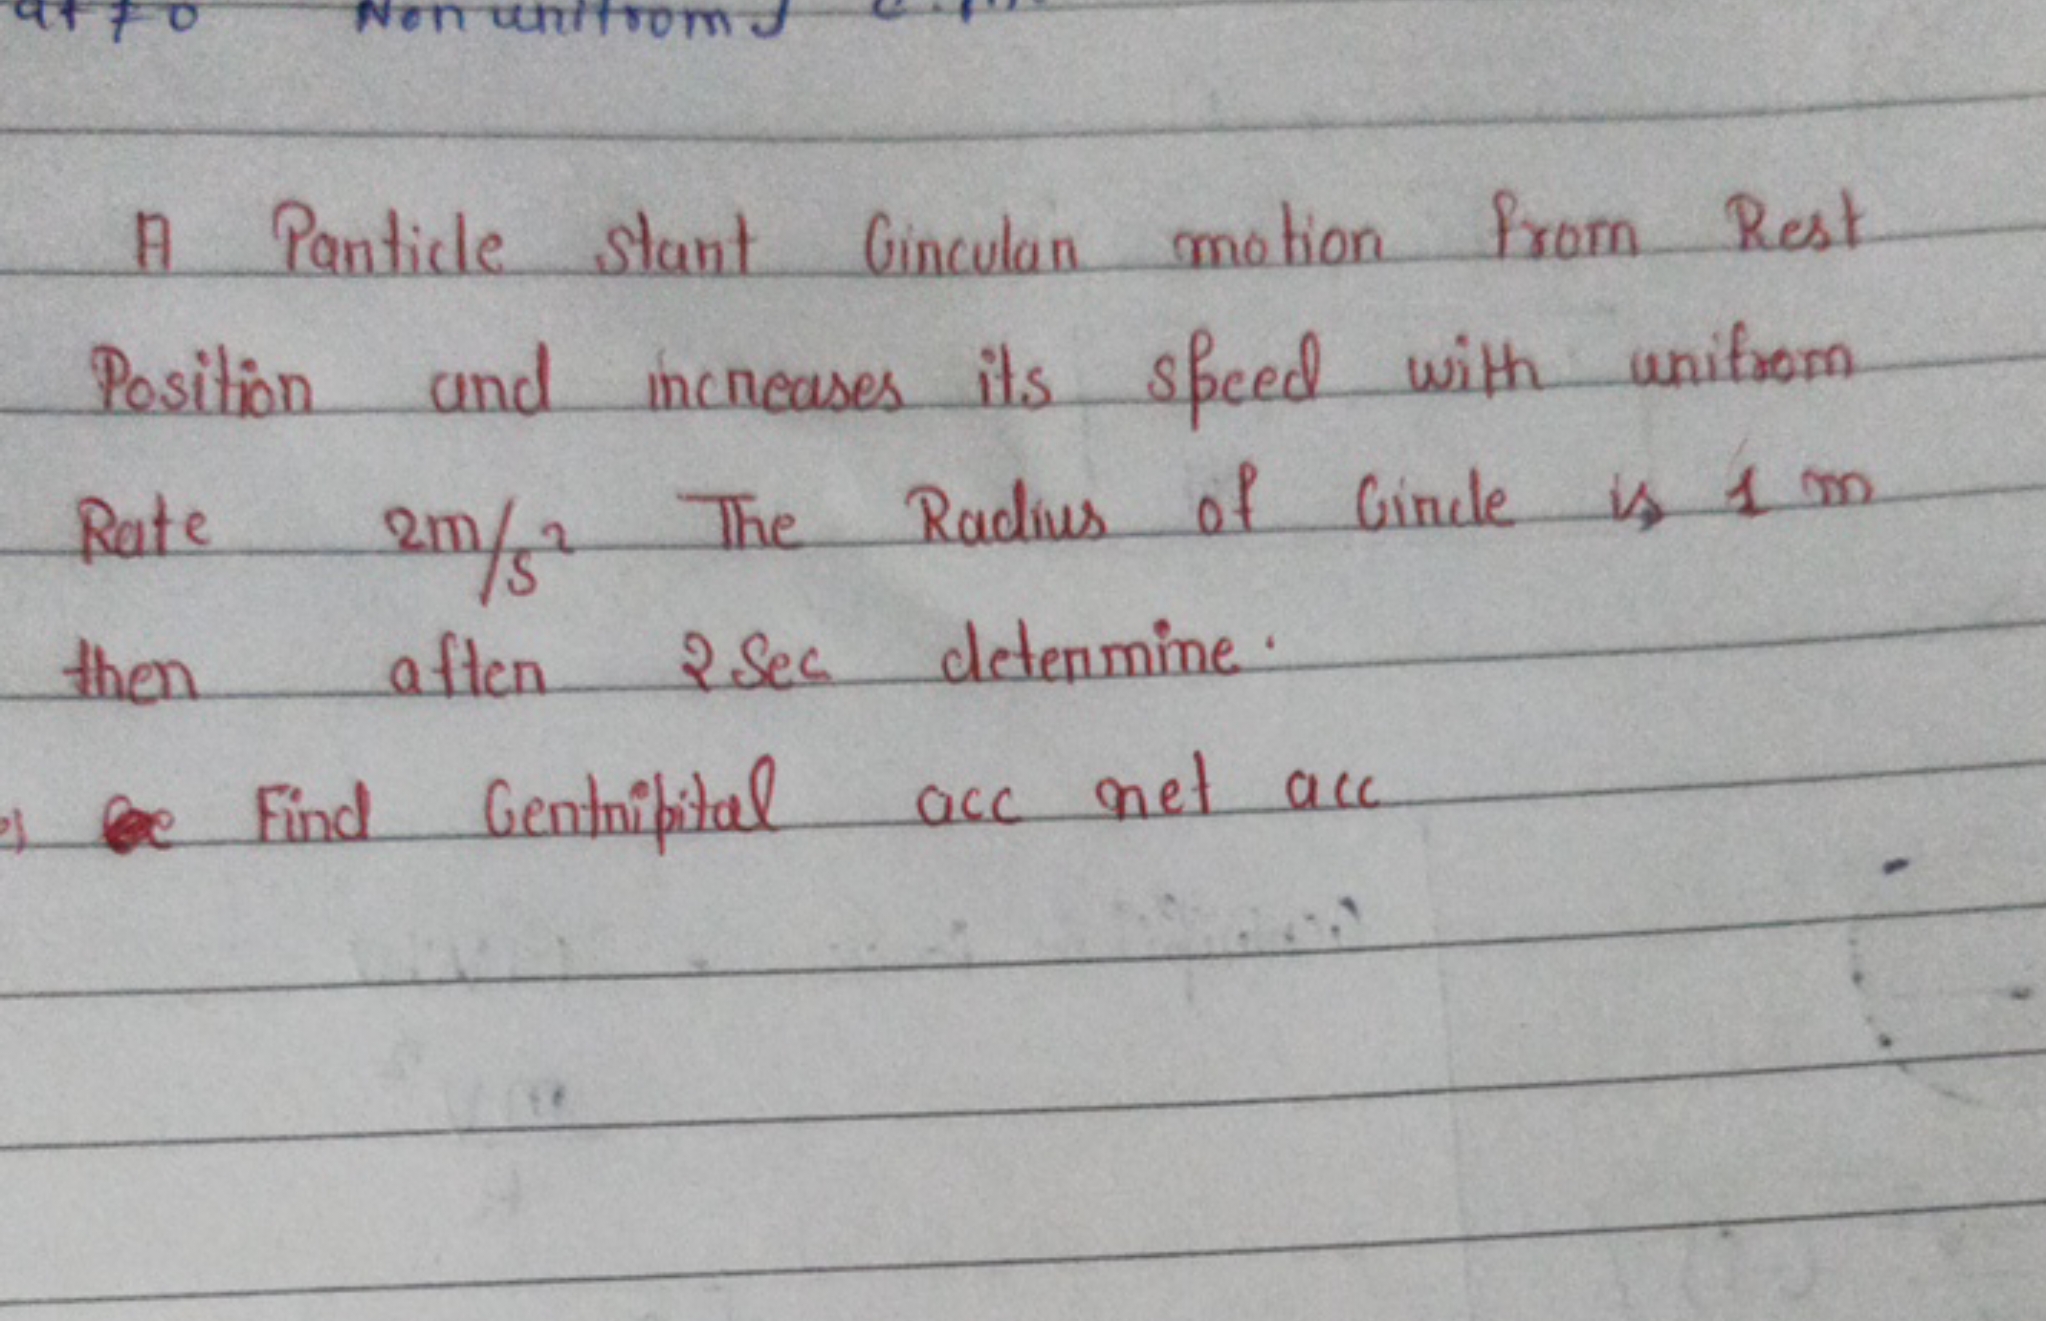 at ≠ 0 Non unifrom
A Panticle stant Cinculan motion from Rest
Position and incneases its speed with unifrom
Rate 2m/s² The Radius of Cincle is 1 m
then aften 2 Sec detenmine.
Find Centnipital acc net acc